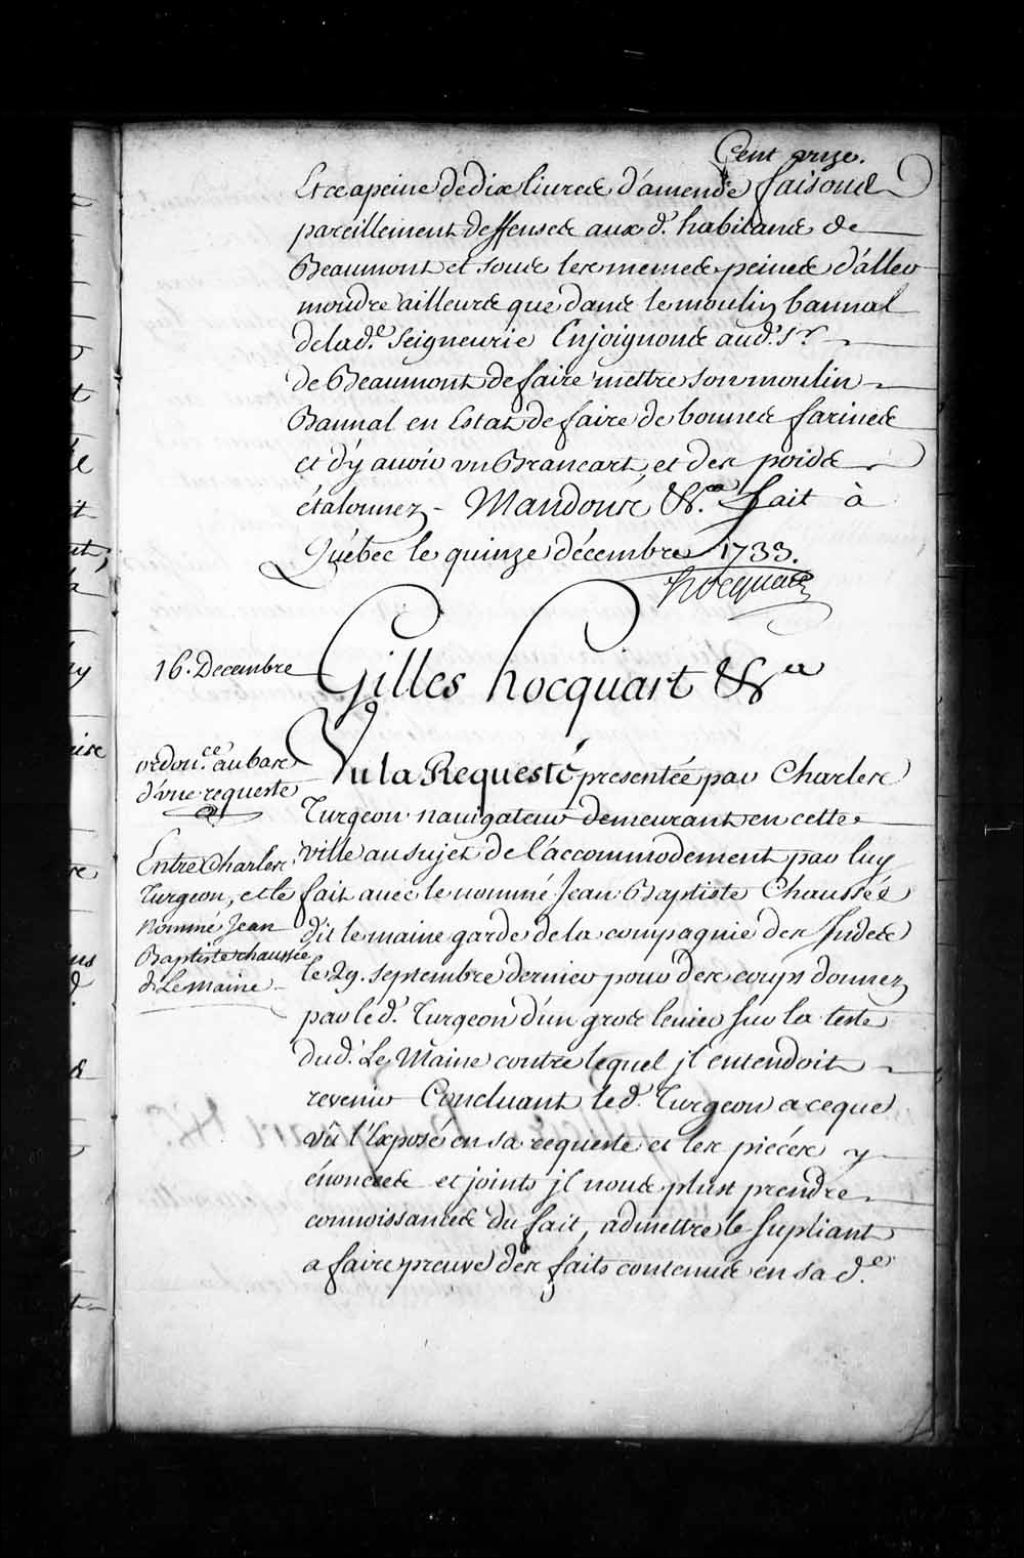 Cent onze.
Et ce a peine de dix livres d'amende faisons
pareillement deffenses aux d. habitans de
Beaumont et sous les memes peines d'aller
moudre ailleurs que dans le moulin bannal
de lad.e Seigneurie Enjoignons aud. S.r
de Beaumont de faire mettre son moulin
Bannal en Estat de faire de bonnes farines
et d'y avoir un Brancart, et des poids
étalonnez - Mandons &.a fait à
Québec le quinze décembre 1733.
hocquart
16. Decembre
Gilles hocquart &.a
ordon.ce au bas
d'une requeste
Entre Charles
Turgeon, et le
nommé Jean
Baptiste chaussée
d. Le maine
Vu la Requeste presentée par Charles
Turgeon navigateur demeurant en cette
ville au sujet de l'accommodement par luy
fait avec le nommé Jean Baptiste Chaussée
dit lemaine garde de la compagnie des Indes
le 29. septembre dernier pour des coups donnez
par le d. Turgeon d'un gros levier sur la teste
dud. Le Maine contre lequel jl entendoit
revenir Concluant le d. Turgeon a ce que
vû l'Exposé en sa requeste et les pieces y
énoncées et joints jl nous plust prendre
connoissances du fait, admettre le supliant
a faire preuve des faits contenus en sa d.e